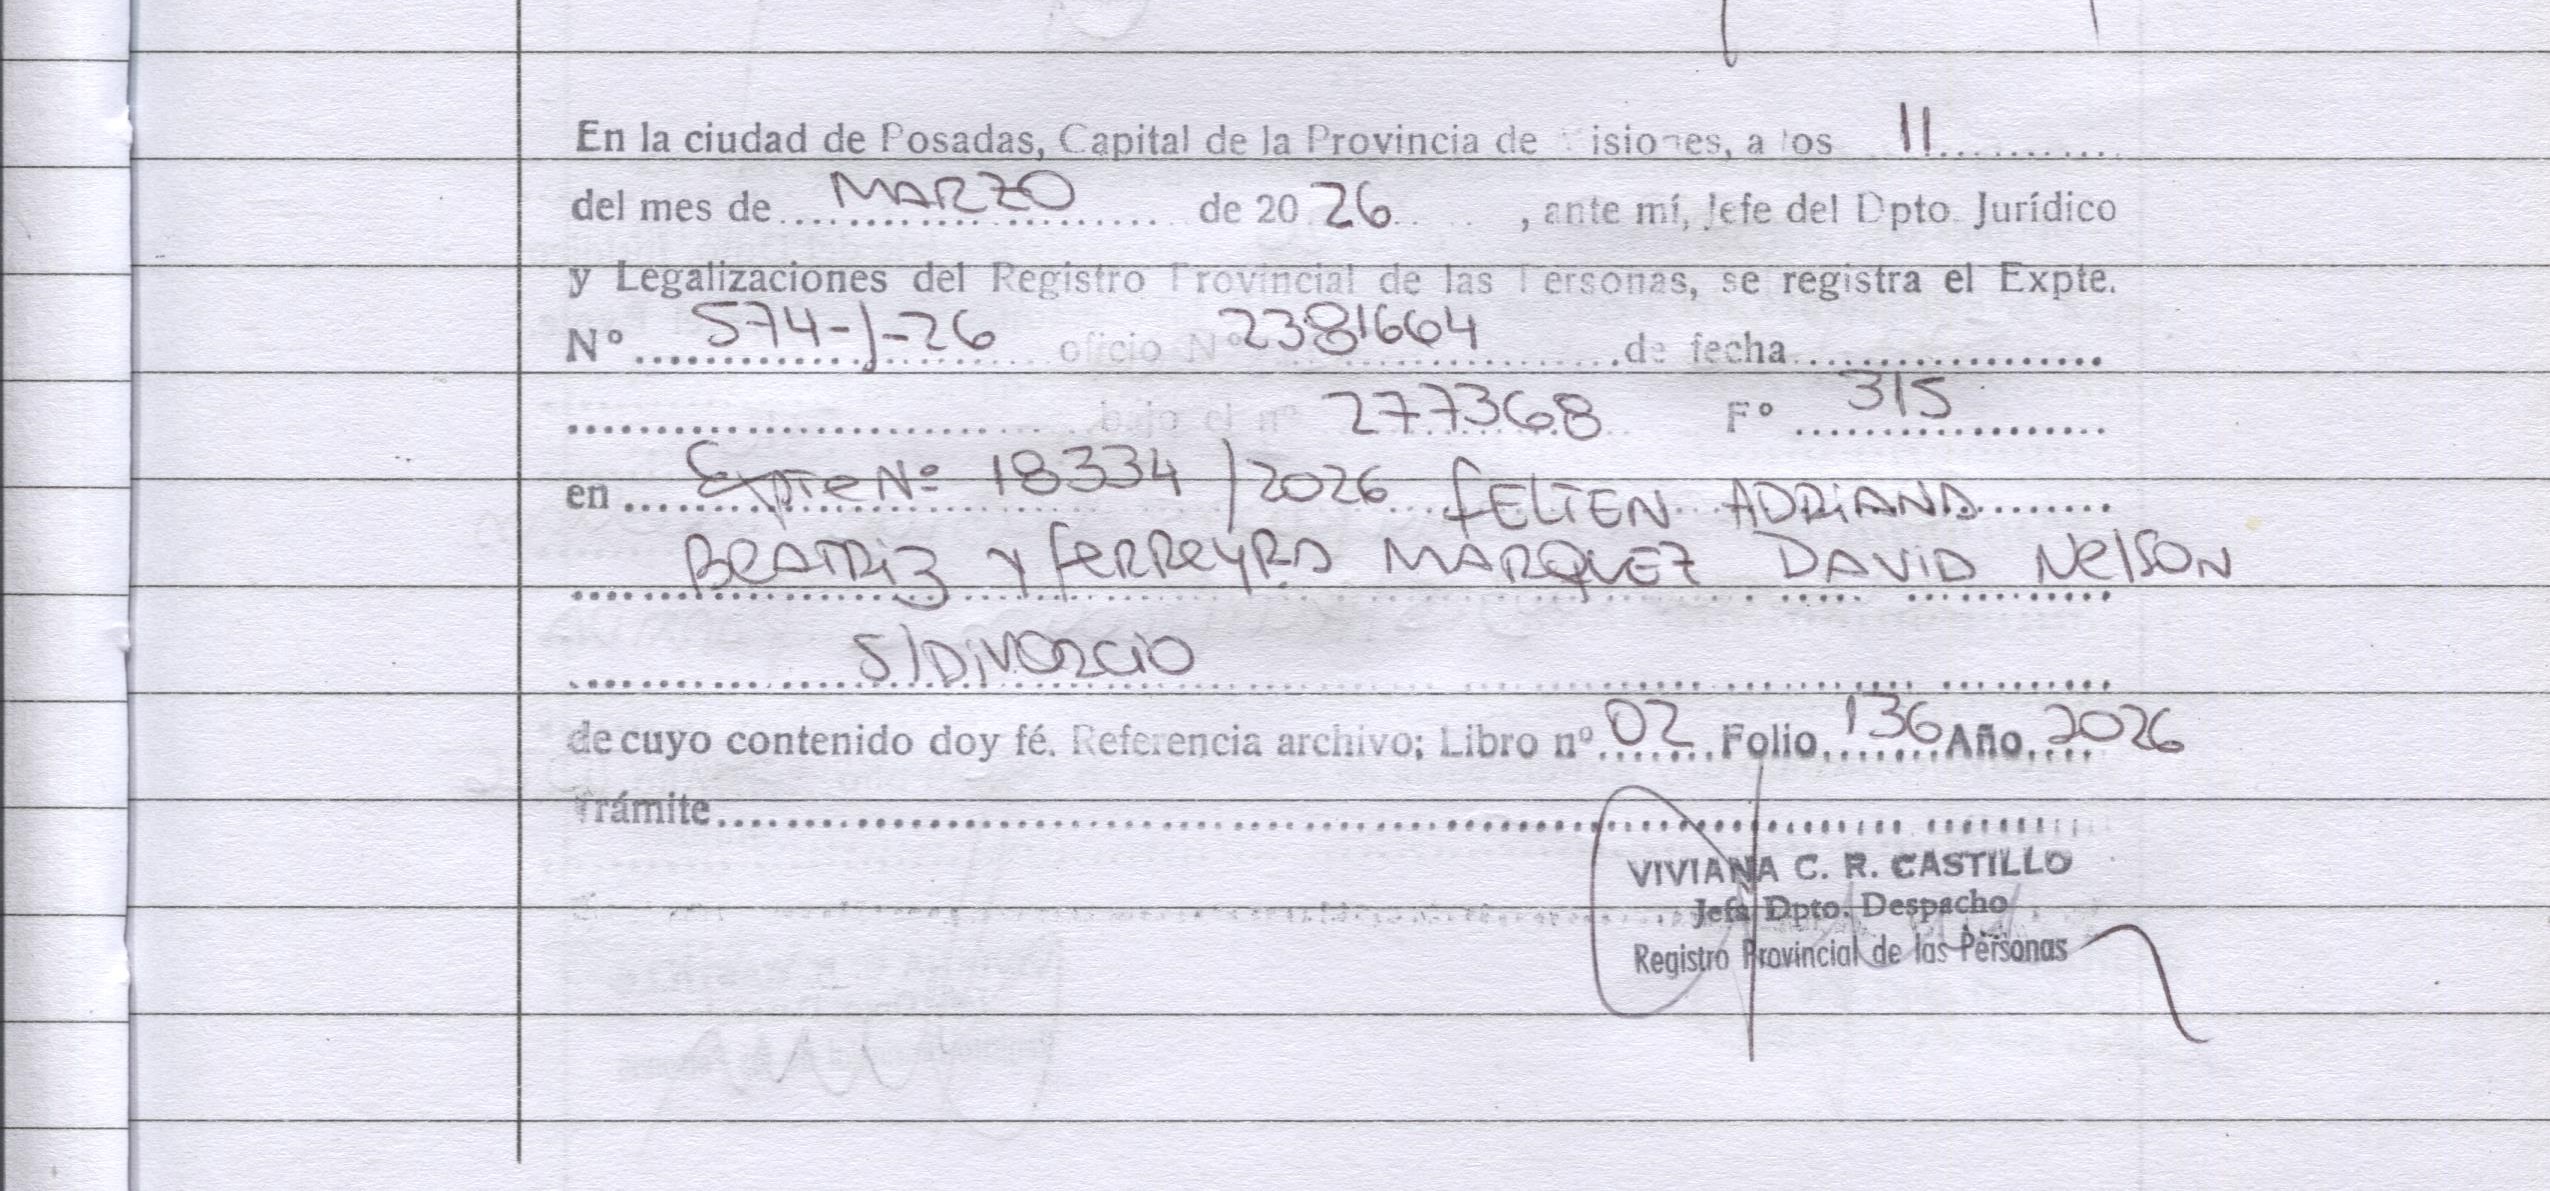 En la ciudad de Posadas, Capital de la Provincia de Misiones, a los 11
del mes de MARZO de 20 26, ante mí, Jefe del Dpto. Jurídico
y Legalizaciones del Registro Provincial de las Personas, se registra el Expte.
Nº 574-J-26 oficio Nº 2381664 de fecha
bajo el nº 277368 Fº 315
en Expte Nº 18334/2026 FELTEN ADRIANA
BEATRIZ y FERREYRA MARQUEZ DAVID NELSON
S/DIVORCIO
de cuyo contenido doy fé. Referencia archivo; Libro nº 02 Folio 136 Año 2026
Trámite
VIVIANA C. R. CASTILLO
Jefa Dpto. Despacho
Registro Provincial de las Personas